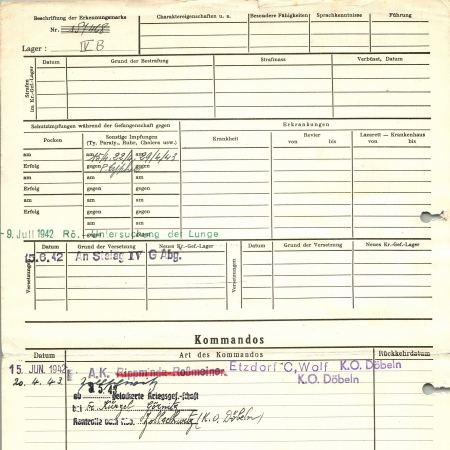 Beschriftung der Erkennungsmarke
Nr.
Lager: IV B
Charaktereigenschaften u. a.
Besondere Fähigkeiten
Sprachkenntnisse
Führung
Strafen im Kr.-Gef.-Lager
Datum
Grund der Bestrafung
Strafmass
Verbüsst, Datum
Schutzimpfungen während der Gefangenschaft gegen
Erkrankungen
Pocken
Sonstige Impfungen
(Ty. Paraty., Ruhr, Cholera usw.)
Krankheit
Revier
von bis
Lazarett — Krankenhaus
von bis
am
am 15/4. 22/4. am 29/4/43
Erfolg
gegen
gegen
am
am
am
Erfolg
gegen
gegen
am
am
am
Erfolg
gegen
gegen
am
am
gegen
gegen
- 9. Juli 1942 Rö.-Untersuchung der Lunge
Versetzungen
Datum
Grund der Versetzung
Neues Kr.-Gef.-Lager
Versetzungen
Datum
Grund der Versetzung
Neues Kr.-Gef.-Lager
15.6.42 An Stalag IV G Abg.
Kommandos
Datum
Art des Kommandos
Rückkehrdatum
15. JUN. 1942 A.K. Etzdorf C, Wolf K.O. Döbeln
20. 4. 43 K.O. Döbeln
5/43
ab gelockerte Kriegsgef.-schaft
bei Künzel
Kontrolle (K.O. Döbeln)